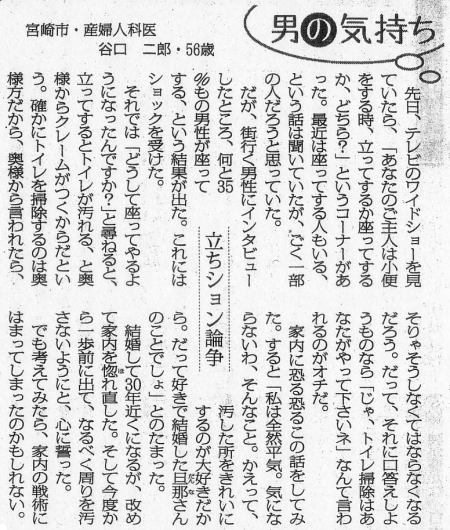 男の気持ち
宮崎市・産婦人科医
谷口 二郎・56歳
立ちション論争
先日、テレビのワイドショーを見
ていたら、「あなたのご主人は小便
をする時、立ってするか座ってする
か、どちら?」というコーナーがあ
った。最近は座ってする人もいる、
という話は聞いていたが、ごく一部
の人だろうと思っていた。
だが、街行く男性にインタビュー
したところ、何と35
%もの男性が座って
する、という結果が出た。これには
ショックを受けた。
それでは「どうして座ってやるよ
うになったんですか?」と尋ねると、
立ってするとトイレが汚れる、と奥
様からクレームがつくからだとい
う。確かにトイレを掃除するのは奥
様方だから、奥様から言われたら、
そりゃそうしなくてはならなくなる
だろう。だって、それに口答えしよ
うものなら「じゃ、トイレ掃除はあ
なたがやって下さいネ」なんて言わ
れるのがオチだ。
家内に恐る恐るこの話をしてみ
た。すると「私は全然平気。気にな
らないわ、そんなこと。かえって、
汚した所をきれいに
するのが大好きだか
ら。だって好きで結婚した旦那さん
のことでしょ」とのたまった。
結婚して30年近くになるが、改め
て家内を惚れ直した。そして今度か
ら一歩前に出て、なるべく周りを汚
さないようにと、心に誓った。
でも考えてみたら、家内の戦術に
はまってしまったのかもしれない。